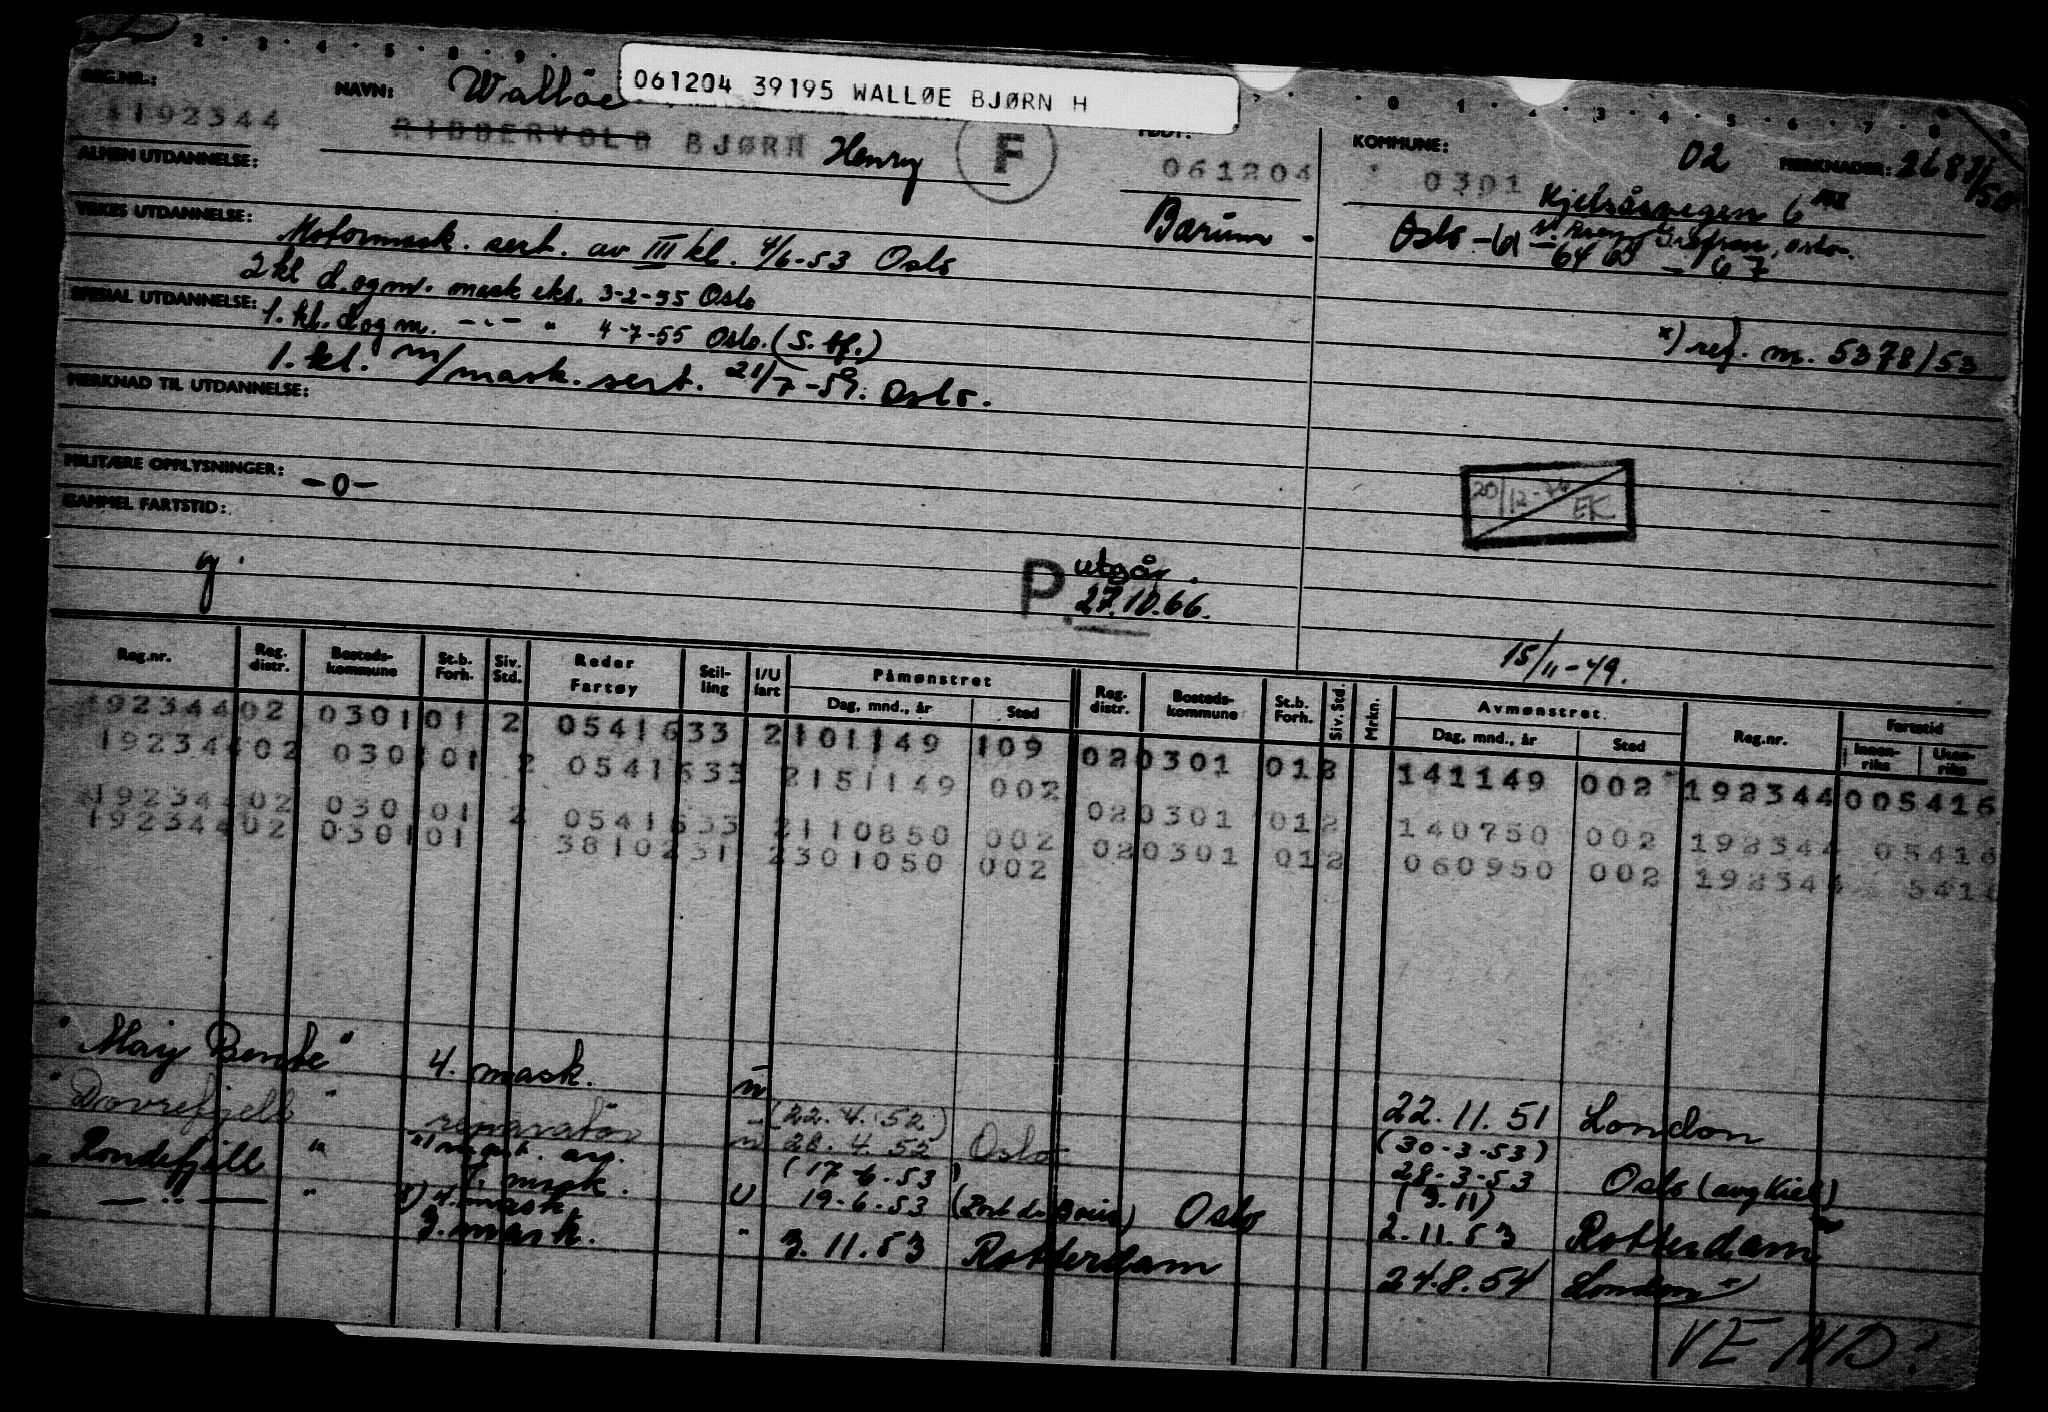 061204 39195 WALLØE BJØRN H
REG.NR.:
192344
NAVN: Walløe
RIDDERVOLD BJØRN Henry
F
FØDT:
061204
Bærum -
KOMMUNE:
0301
02
MERKNADER: 2687/50
Kjelsåsvegen 6
Oslo - 61 - 64 65 - 67
ALMEN UTDANNELSE:
YRKES UTDANNELSE: Motormask. sert. av III kl. 4/6-53 Oslo
2 kl d. og m. mask eks. 3-2-55 Oslo
SPESIAL UTDANNELSE: 1. kl. d og m. - " - " 4-7-55 Oslo. (S. bf.)
1. kl. m/mask. sert. 21/7-59. Oslo.
x) ref. nr. 5378/53
MERKNAD TIL UTDANNELSE:
MILITÆRE OPPLYSNINGER: -0-
20/12-74 EK
GAMMEL FARTSTID:
g.
P utgår.
27.10.66.
15/11-49.
Reg.nr. Reg. distr. Bosteds-kommune St.b. Forh. Siv. Std. Reder Fartøy Stil-ling I/U fart Påmønstret Dag, mnd., år Sted Reg. distr. Bosteds-kommune St.b. Forh. Siv. Std. Mrkn. Avmønstret Dag, mnd., år Sted Reg.nr. Fartstid Innen-riks Uten-riks
192344 02 0301 01 2 0541 633 2 101149 109 02 0301 01 2 141149 002 192344 005416
192344 02 0301 01 2 0541 633 2 151149 002 02 0301 01 2 140750 002 192344 05416
192344 02 0301 01 2 0541 633 2 110850 002 02 0301 01 2 060950 002 192344 5416
192344 02 0301 01 3810 231 2 301050 002
" 4. mask. u 22.11.51 London
"Dovrefjell" reparatør (22.4.52) 28.4.52 Oslo (30-3-53) 28-3-53 Oslo (avg Kiel)
"Rondefjell" 4. mask. U (17-6-53) 19-6-53 Oslo (3.11) 2.11.53 Rotterdam
- " - " 3. mask. " 3.11.53 Rotterdam 24.8.54 London
VEND!